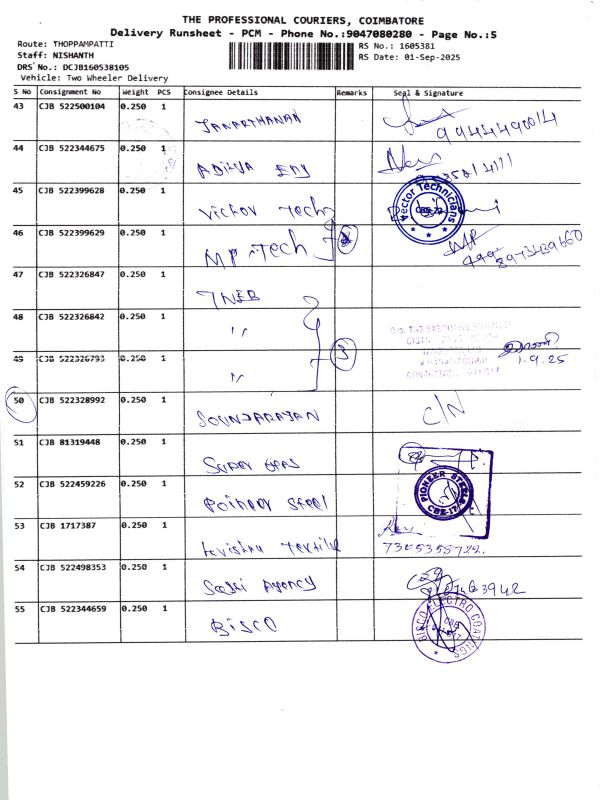 THE PROFESSIONAL COURIERS, COIMBATORE
Delivery Runsheet - PCM - Phone No.:9047080280 - Page No.:5
Route: THOPPAMPATTI
Staff: NISHANTH
DRS No.: DCJB160538105
Vehicle: Two Wheeler Delivery
RS No.: 1605381
RS Date: 01-Sep-2025
S No Consignment No Weight PCS Consignee Details Remarks Seal & Signature
43 CJB 522500104 0.250 1 JANARTHANAN
44 CJB 522344675 0.250 1 ADITYA
45 CJB 522399628 0.250 1 Vector Tech
Vector Technicians
46 CJB 522399629 0.250 1 MP iTech
47 CJB 522326847 0.250 1 TNEB
48 CJB 522326842 0.250 1 〃
49 CJB 522326793 0.250 1 〃 3
1.9.25
50 CJB 522328992 0.250 1 SOUNDARAJAN C/N
51 CJB 81319448 0.250 1 Super Gas
52 CJB 522459226 0.250 1 Poineer Steel
PIONEER STEELS
53 CJB 1717387 0.250 1 Textile
7305355722.
54 CJB 522498353 0.250 1 Agency
55 CJB 522344659 0.250 1 BISCO
BISCO ELECTRO COATINGS